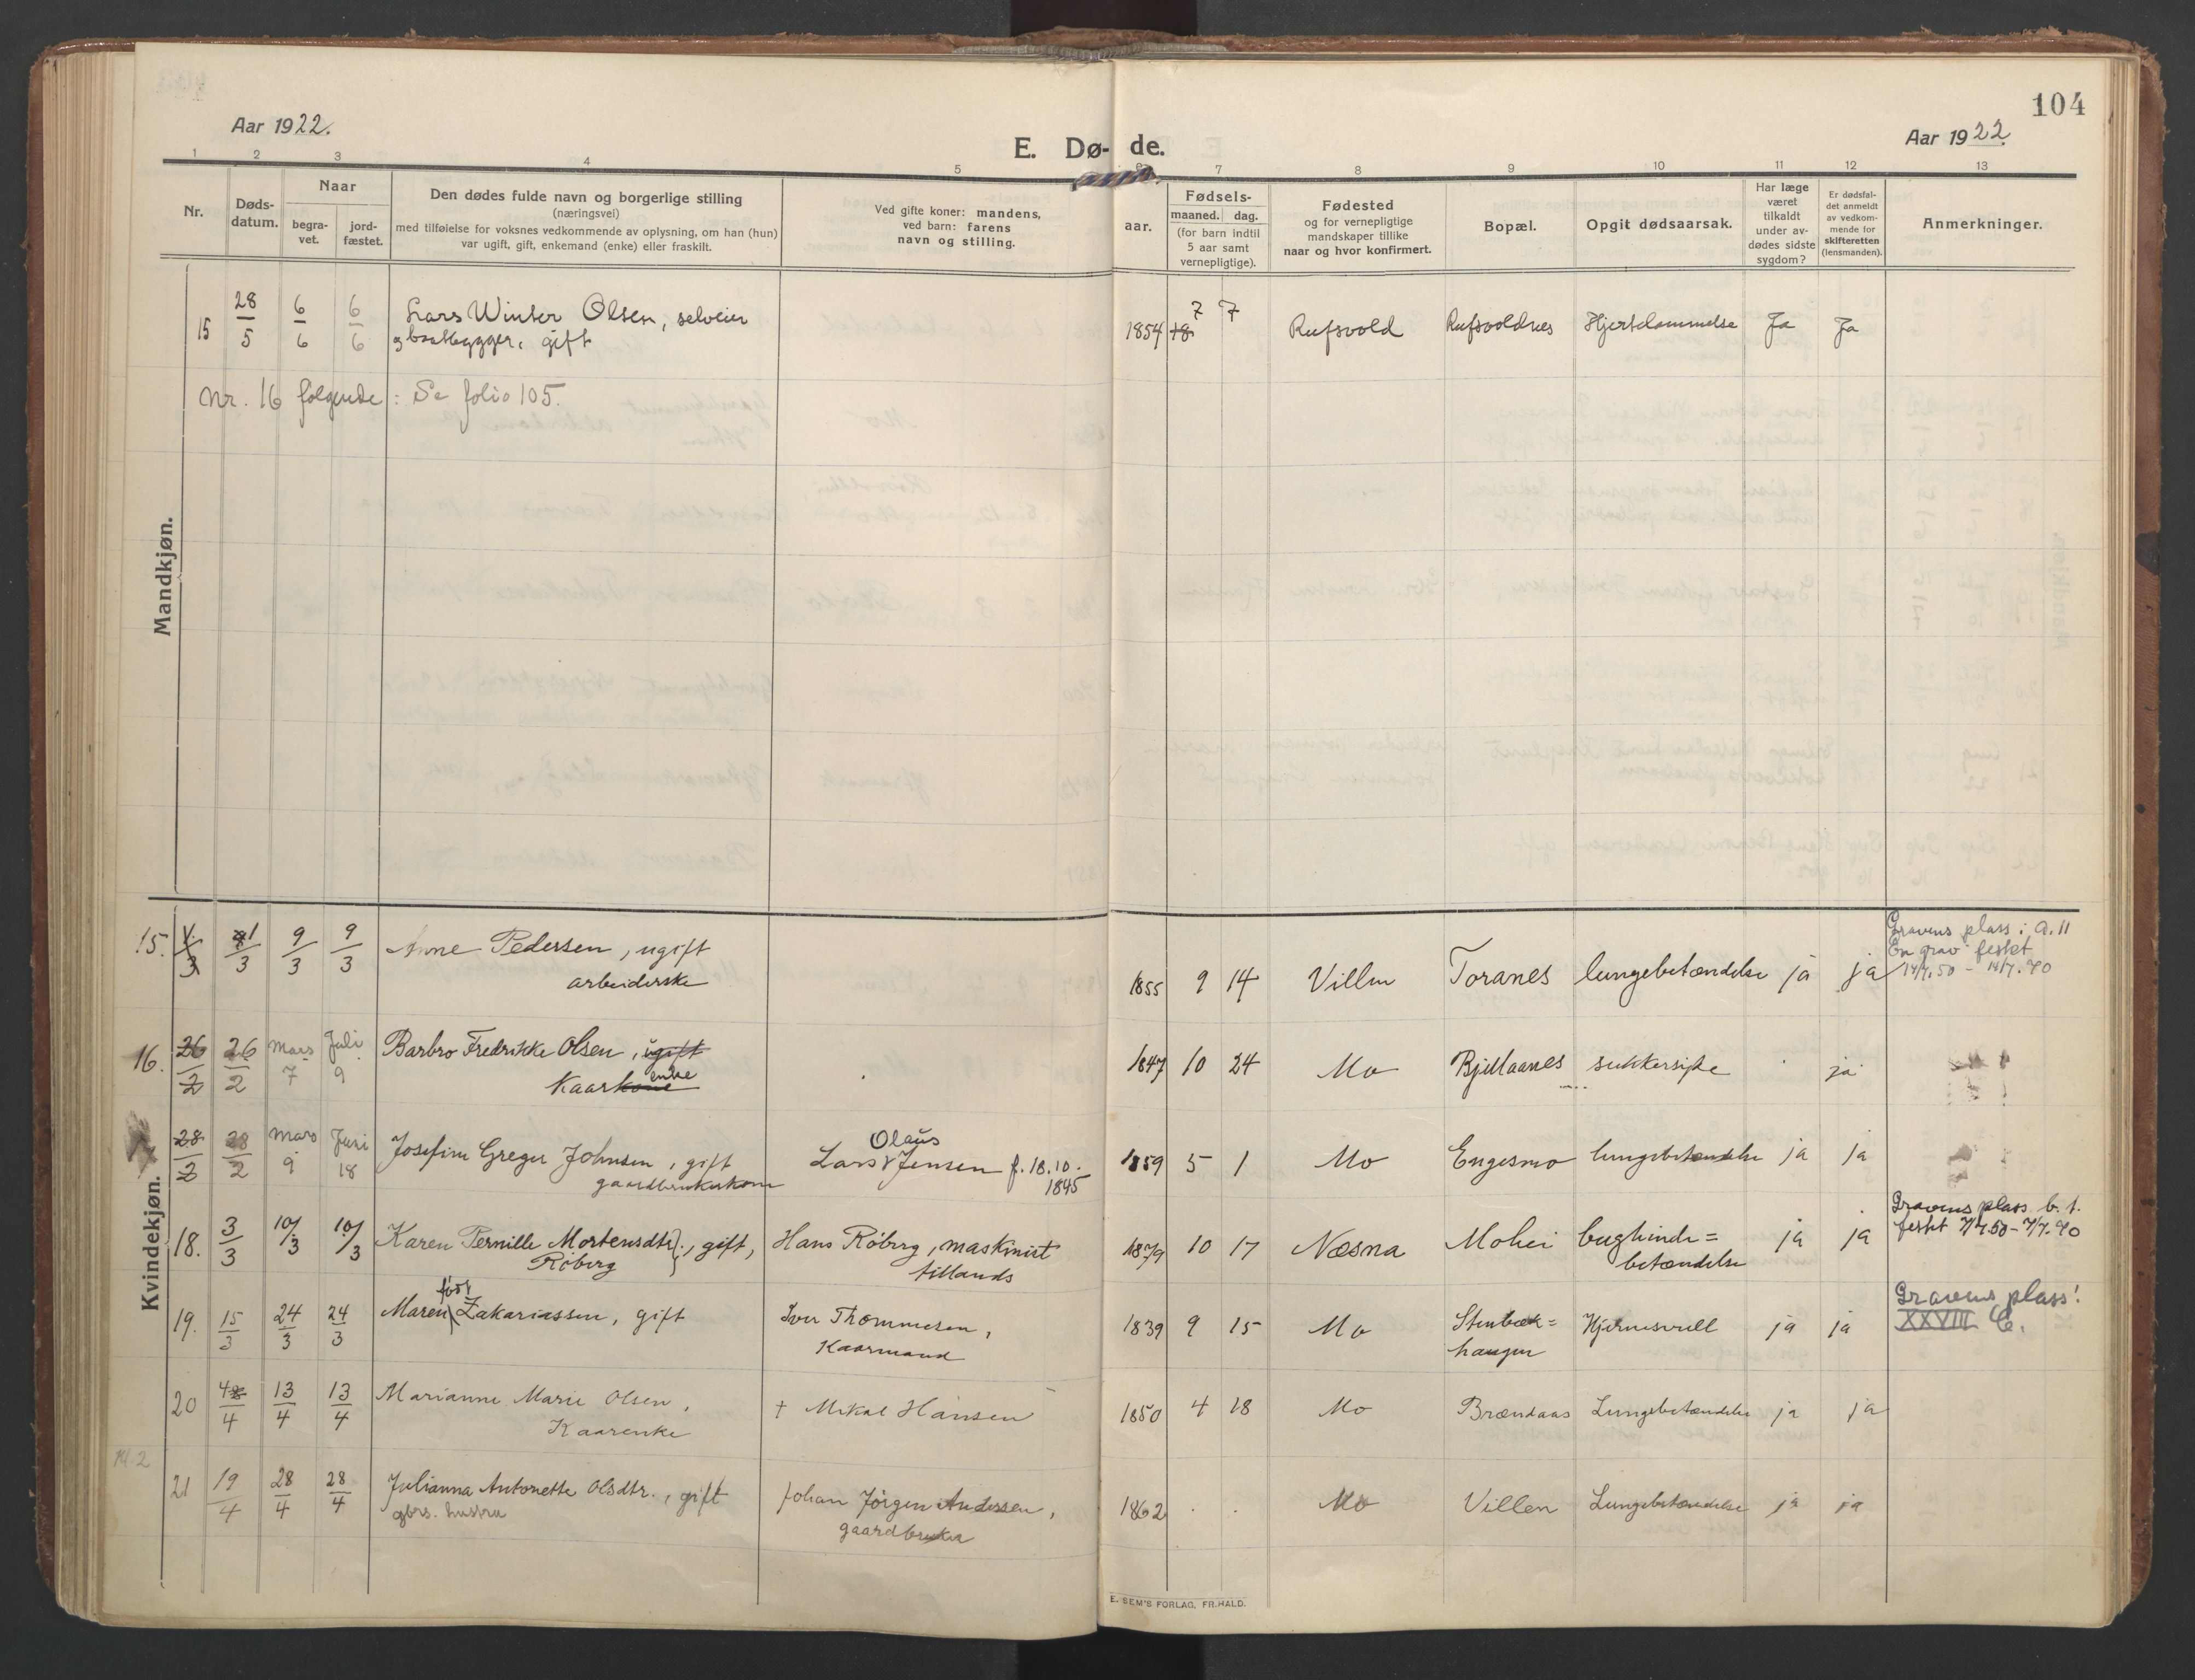 104
Aar 1922.
Aar 1922.
E. Dø- de.
1 2 3 4 5 6 7 8 9 10 11 12 13
Nr.
Døds-
datum.
Naar
begra-
vet.
jord-
fæstet.
Den dødes fulde navn og borgerlige stilling
(næringsvei)
med tilføielse for voksnes vedkommende av oplysning, om han (hun)
var ugift, gift, enkemand (enke) eller fraskilt.
Ved gifte koner: mandens,
ved barn: farens
navn og stilling.
Fødsels-
aar.
maaned. dag.
(for barn indtil
5 aar samt
vernepligtige).
Fødested
og for vernepligtige
mandskaper tillike
naar og hvor konfirmert.
Bopæl.
Opgit dødsaarsak.
Har læge
været
tilkaldt
under av-
dødes sidste
sygdom?
Er dødsfal-
det anmeldt
av vedkom-
mende for
skifteretten
(lensmanden).
Anmerkninger.
Mandkjøn.
15 28/5 6/6 6/6 Lars Winter Olsen, selveier
og baatbygger, gift
1854 18 7 7 Rufsvold Rufsvoldnes Hjertelammelse Ja Ja
Nr. 16 følgende: Se folio 105.
Kvindekjøn.
15. 1/3 9/3 9/3 Anne Pedersen, ugift
arbeiderske
1855 9 14 Villen Toranes lungebetændelse ja ja
Gravens plass: a. 11
En grav festet
14/7.50 - 14/7.70
16. 26/2 26/2 Mars 7 Juli 9 Barbro Fredrikke Olsen, ugift
Kaarkone enke
1847 10 24 Mo Bjellaanes sukkersyke ja
28/2 28/2 Mars 9 Juni 18 Josefine Greger Johnsen, gift
gaardbrukerkone
Lars Olaüs Jensen f. 18.10.
1845
1859 5 1 Mo Engesmo lungebetændelse ja ja
18. 3/3 10/3 10/3 Karen Pernille Mortensdtr., gift,
Röberg
Hans Röberg, maskinist
tillands
1879 10 17 Næsna Mohei bughinde=
betændelse
ja ja
Gravens plass b. 1.
festet 7/7.50 - 7/7.70
19. 15/3 24/3 24/3 Maren født Zakariassen, gift
Iver Thommesen,
Kaarmand
1839 9 15 Mo Stenbæk=
haugen
Hjernesvull ja ja
Gravens plass:
XXVIII C.
20 4/4 13/4 13/4 Marianne Marie Olsen,
Kaarenke
† Mikal Hansen
1850 4 18 Mo Brændaas Lungebetændelse ja ja
21 19/4 28/4 28/4 Julianna Antonette Olsdtr., gift
gbrs. hustru
Johan Jørgen Andersen,
gaardbruker
1862 Mo Villen Lungebetændelse ja ja
E. SEM'S FORLAG, FR.HALD.